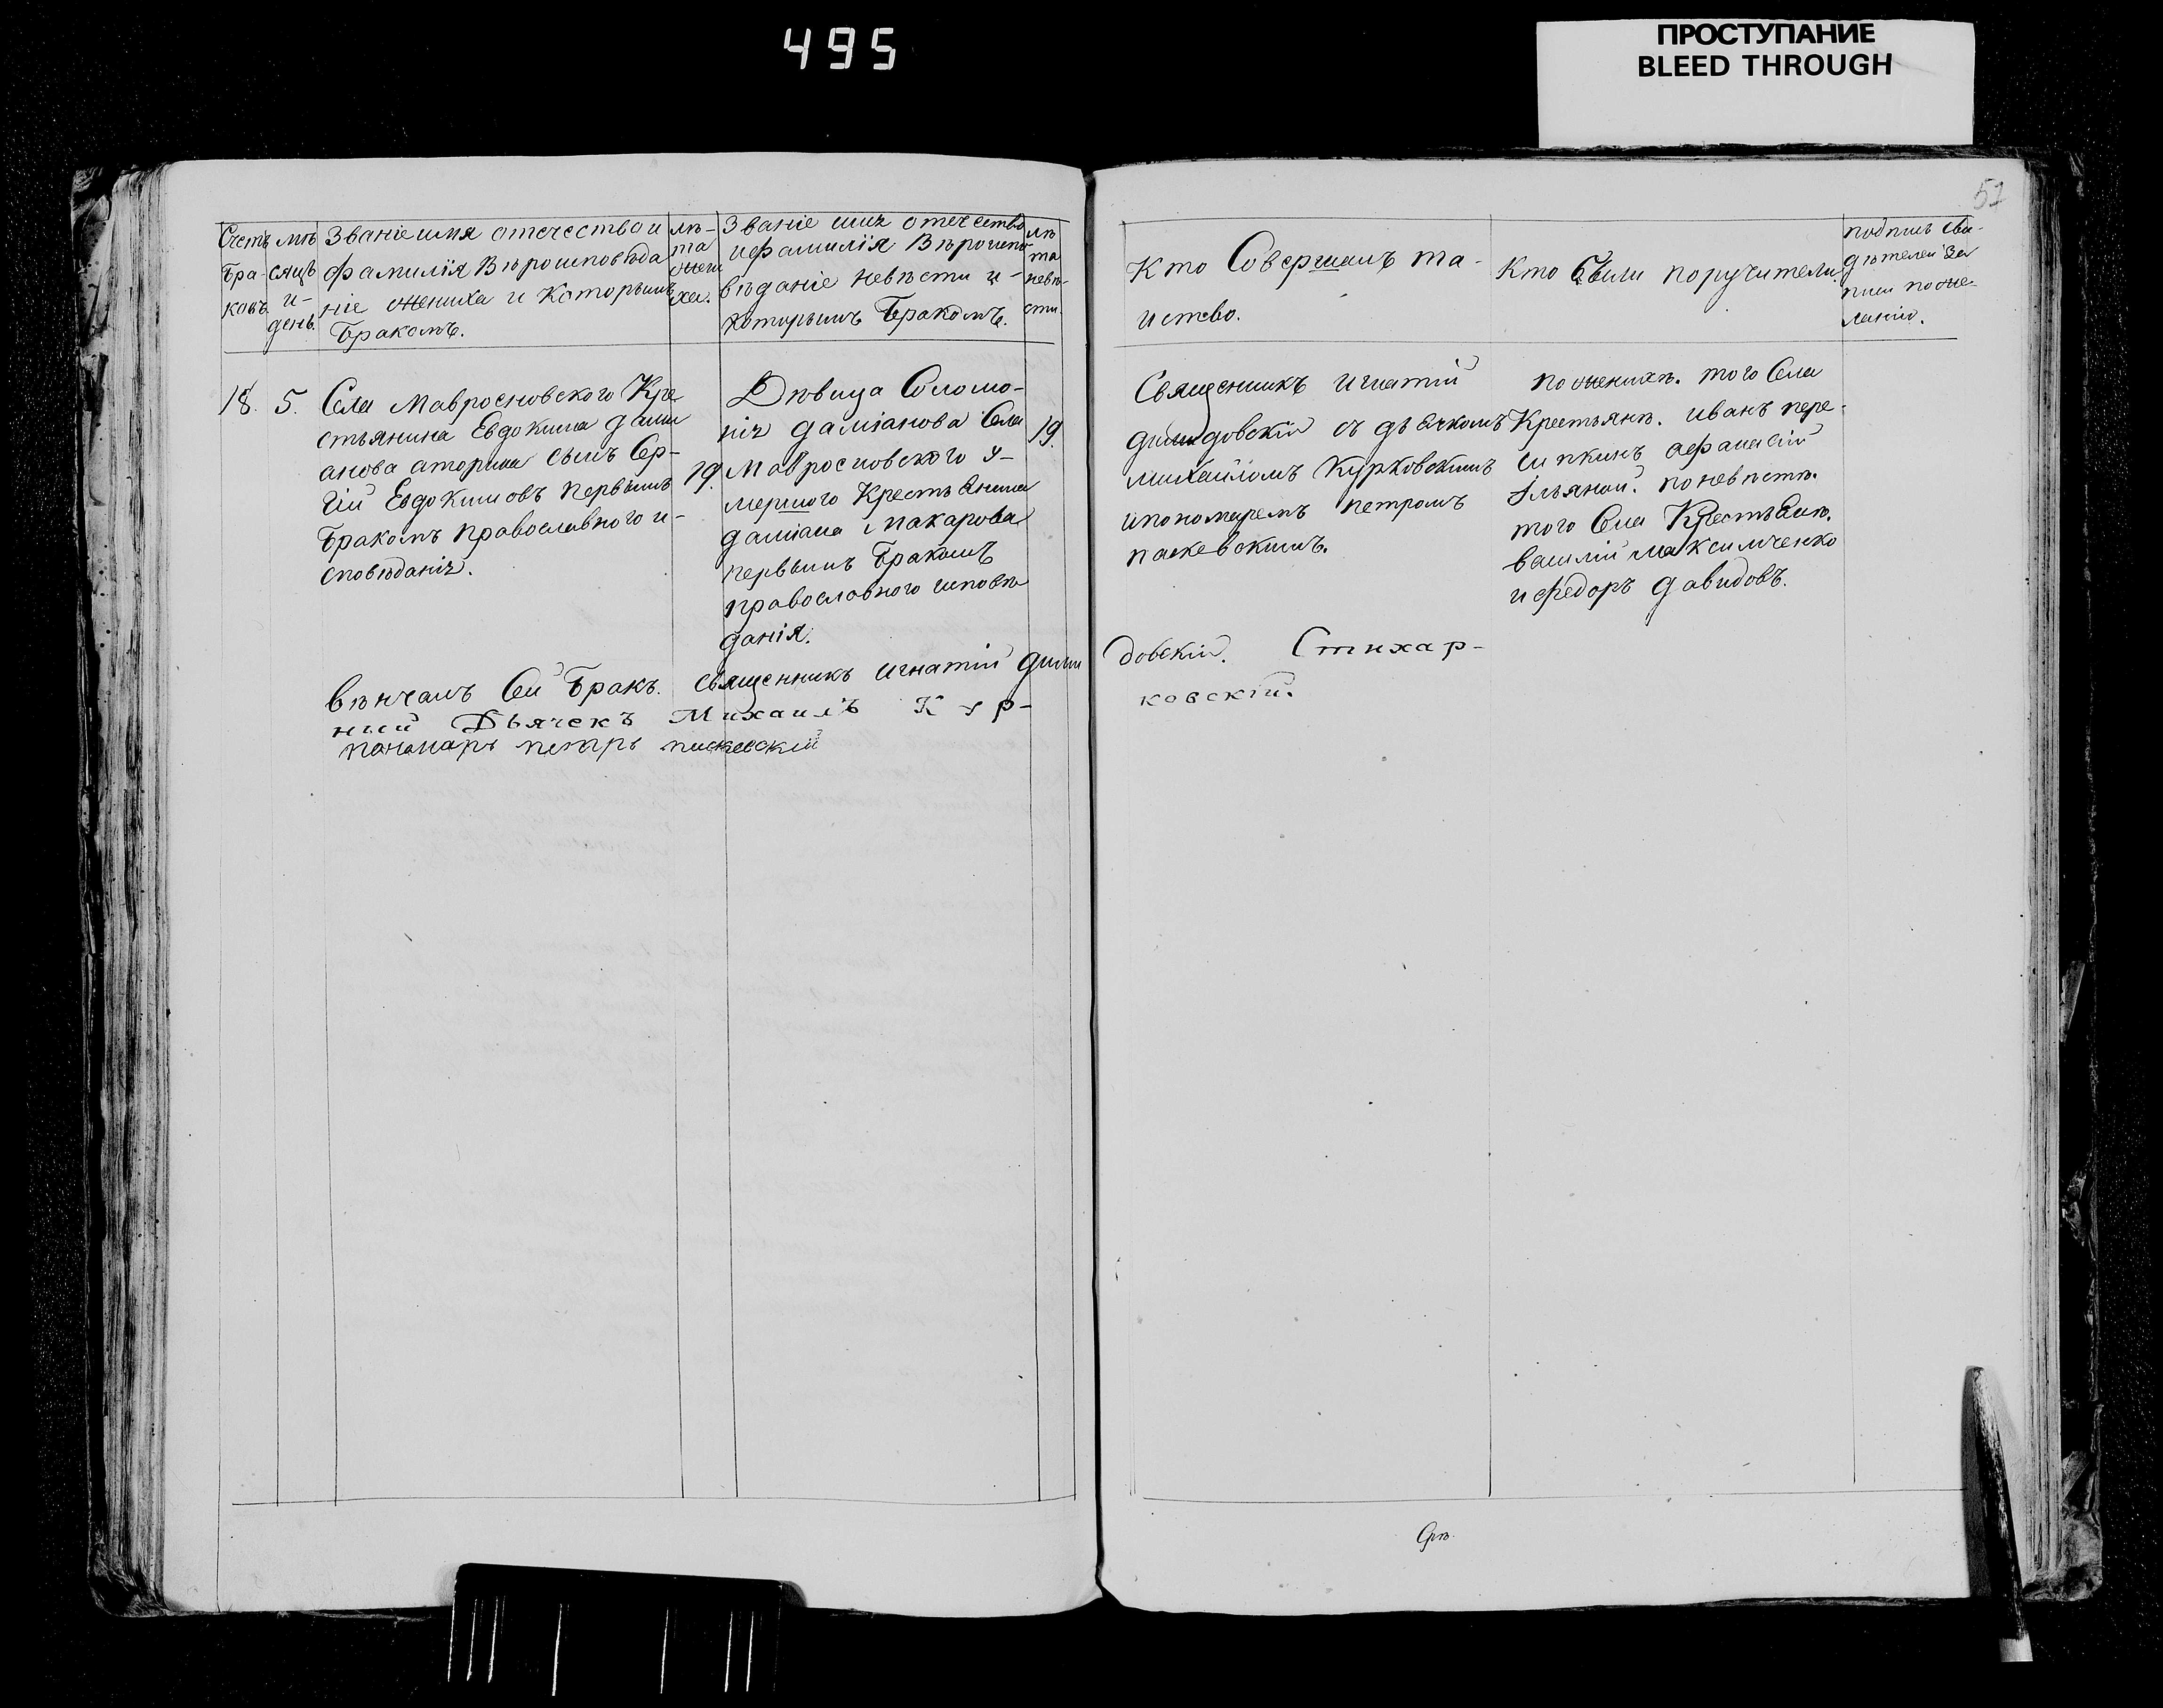 495
ПРОСТУПАНИЕ
BLEED THROUGH
51
Счетъ
бра-
ковъ.
мѣ
сяцъ
и-
день.
Званіе имя отечество и
фамилія вѣроисповѣда
ніе жениха и которымъ
бракомъ.
лѣ-
та
жени
ха.
Званіе имя отечество
и фамилія вѣроиспо-
вѣданіе невѣсти и-
которымъ бракомъ.
лѣ
та
невѣ-
сти.
Кто Совершалъ та-
инство.
Кто были поручители.
подпись сви-
дѣтелей за
писи по же-
ланію.
18. 5.
Села Мавросновского Кре
стьянина Евдокима Дами
анова сынъ Сер-
гій Евдокимовъ первымъ
бракомъ православного и-
сповѣданія.
19.
Дѣвица Соломо-
нія даміанова Села
Мавросновского у-
мершого Крестьянина
даміана Макарова
первымъ бракомъ
православного исповѣ
данія.
19.
Священникъ Игнатій
Димидовскій съ дьячкомъ
михаиломъ Курковскимъ
и пономаремъ петромъ
паскевскимъ.
по женихѣ. того Села
Крестьянѣ. иванъ пере-
сипкинъ афанасій
Ільяной. по невѣстѣ.
того Села Крестьянѣ.
василій максимченко
и федоръ давидовъ.
вѣнчалъ Сей бракъ. священникъ Игнатій Дими
довскій. Стихар-
ный Дьячекъ Михаилъ Кур-
ковскій.
пономарь петръ паскевскій